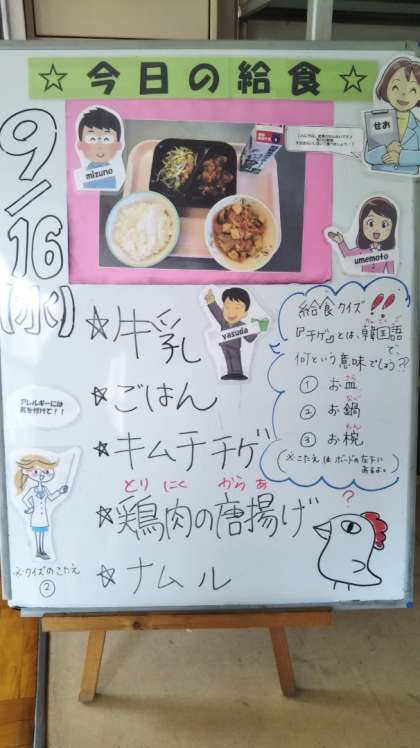 ☆今日の給食☆
9/16(水)
mizuno
せお
umemoto
yasuda
☆牛乳
☆ごはん
☆キムチチゲ
とり にく から あ
☆鶏肉の唐揚げ
☆ナムル
給食クイズ!!
『チゲ』とは、韓国語で、
何という意味でしょう??
さら
① お皿
なべ
② お鍋
わん
③ お椀
(※こたえはボードの左下に
あるよ。)
アレルギーには
気を付けて!!
?
※クイズのこたえ
②